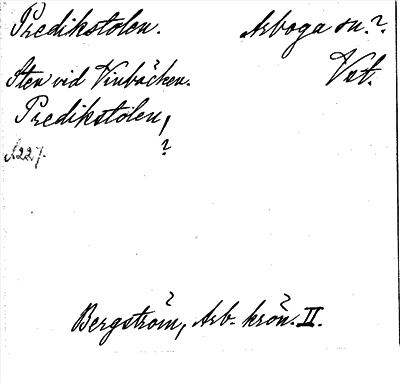 Predikstolen. Arboga sn.?
Sten vid Vinbäcken. Vst.
Predikstolen,
A227. ?
Bergström, Arb. krön. II.